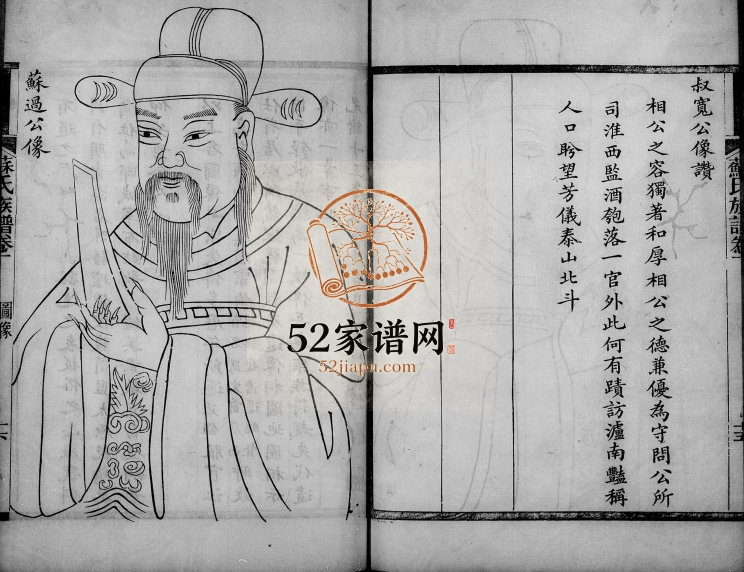 叔寬公像讚
相公之容獨著和厚相公之德兼優為守問公所
司淮西監酒匏落一官外此何有蹟訪瀘南豔稱
人口盻望芳儀泰山北斗
蘇氏族譜卷一
蘇過公像
蘇氏族譜卷一
圖像
52家谱网
52jiapu.com